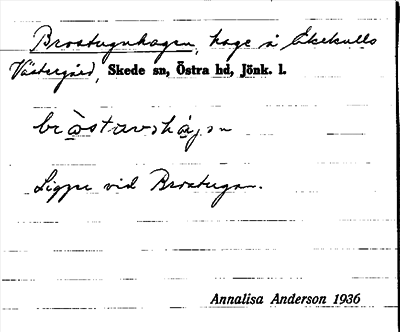 Brostuguhagen, hage å Ekekulls
Västergård, Skede sn, Östra hd, Jönk. l.
bròstavshàgən
Ligger vid Brostugan.
Annalisa Anderson 1936